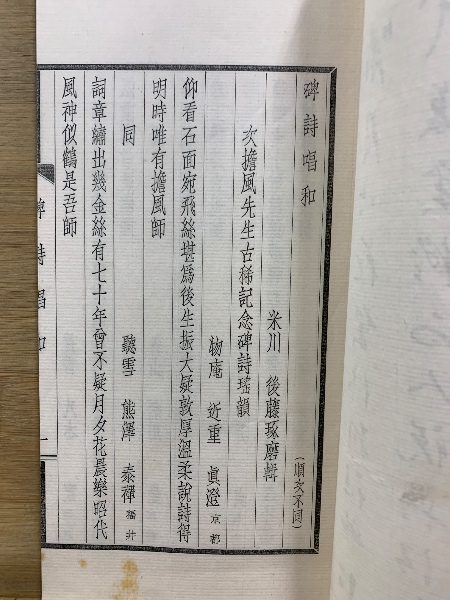 碑詩唱和
米川　後藤琢磨輯（順次不同）
次擔風先生古稀記念碑詩瑤韻
物庵　近重　眞澄　京都
仰看石面宛飛絲甚爲後生振大疑敦厚溫柔說詩得
明時唯有擔風師
同　聽雪　熊澤　泰禪　福井
詞章繡出幾金絲有七十年曾不疑月夕花晨樂昭代
風神似鶴是吾師
碑詩唱和　一